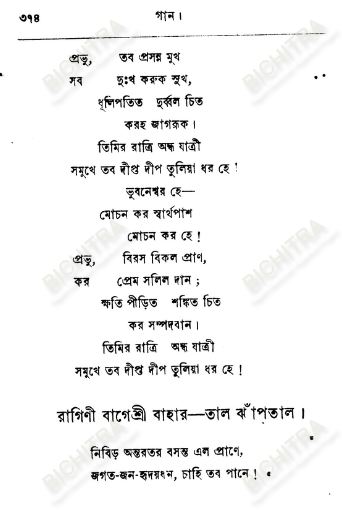 ৩৭৪ গান।
প্রভু, তব প্রসন্ন মুখ
সব দুঃখ করুক সুখ,
ধূলিপতিত দুর্ব্বল চিত
করহ জাগরূক।
তিমির রাত্রি অন্ধ যাত্রী
সমুখে তব দীপ্ত দীপ তুলিয়া ধর হে!
ভুবনেশ্বর হে—
মোচন কর স্বার্থপাশ
মোচন কর হে!
প্রভু, বিরস বিকল প্রাণ,
কর প্রেম সলিল দান;
ক্ষতি পীড়িত শঙ্কিত চিত
কর সম্পদবান।
তিমির রাত্রি অন্ধ যাত্রী
সমুখে তব দীপ্ত দীপ তুলিয়া ধর হে!
রাগিণী বাগেশ্রী বাহার—তাল ঝাঁপতাল।
নিবিড় অন্তরতর বসন্ত এল প্রাণে,
জগত-জন-হৃদয়ধন, চাহি তব পানে!
BICHITRA
BICHITRA
BICHITRA
BICHITRA
BICHITRA